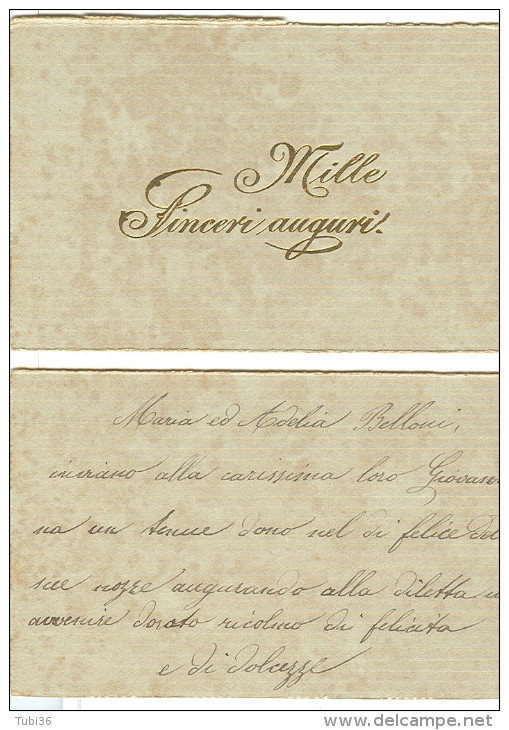 Mille
Sinceri auguri.
Maria ed Adelia Belloni,
inviano alla carissima loro Giovan-
na un tenue dono nel dì felice del
sue nozze augurando alla diletta u
avvenire dorato ricolmo di felicita
e di dolcezze
Tubi36
www.delcampe.net